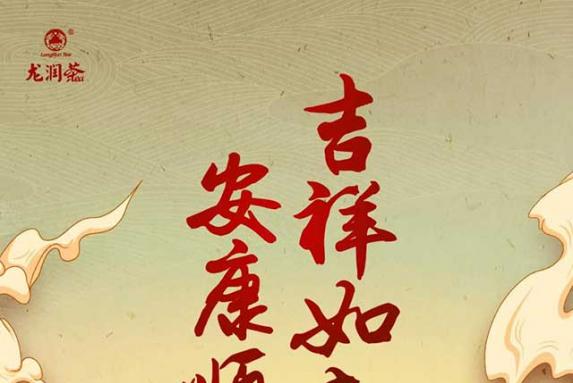 Longrun Tea
龙润茶
吉祥如
安康顺